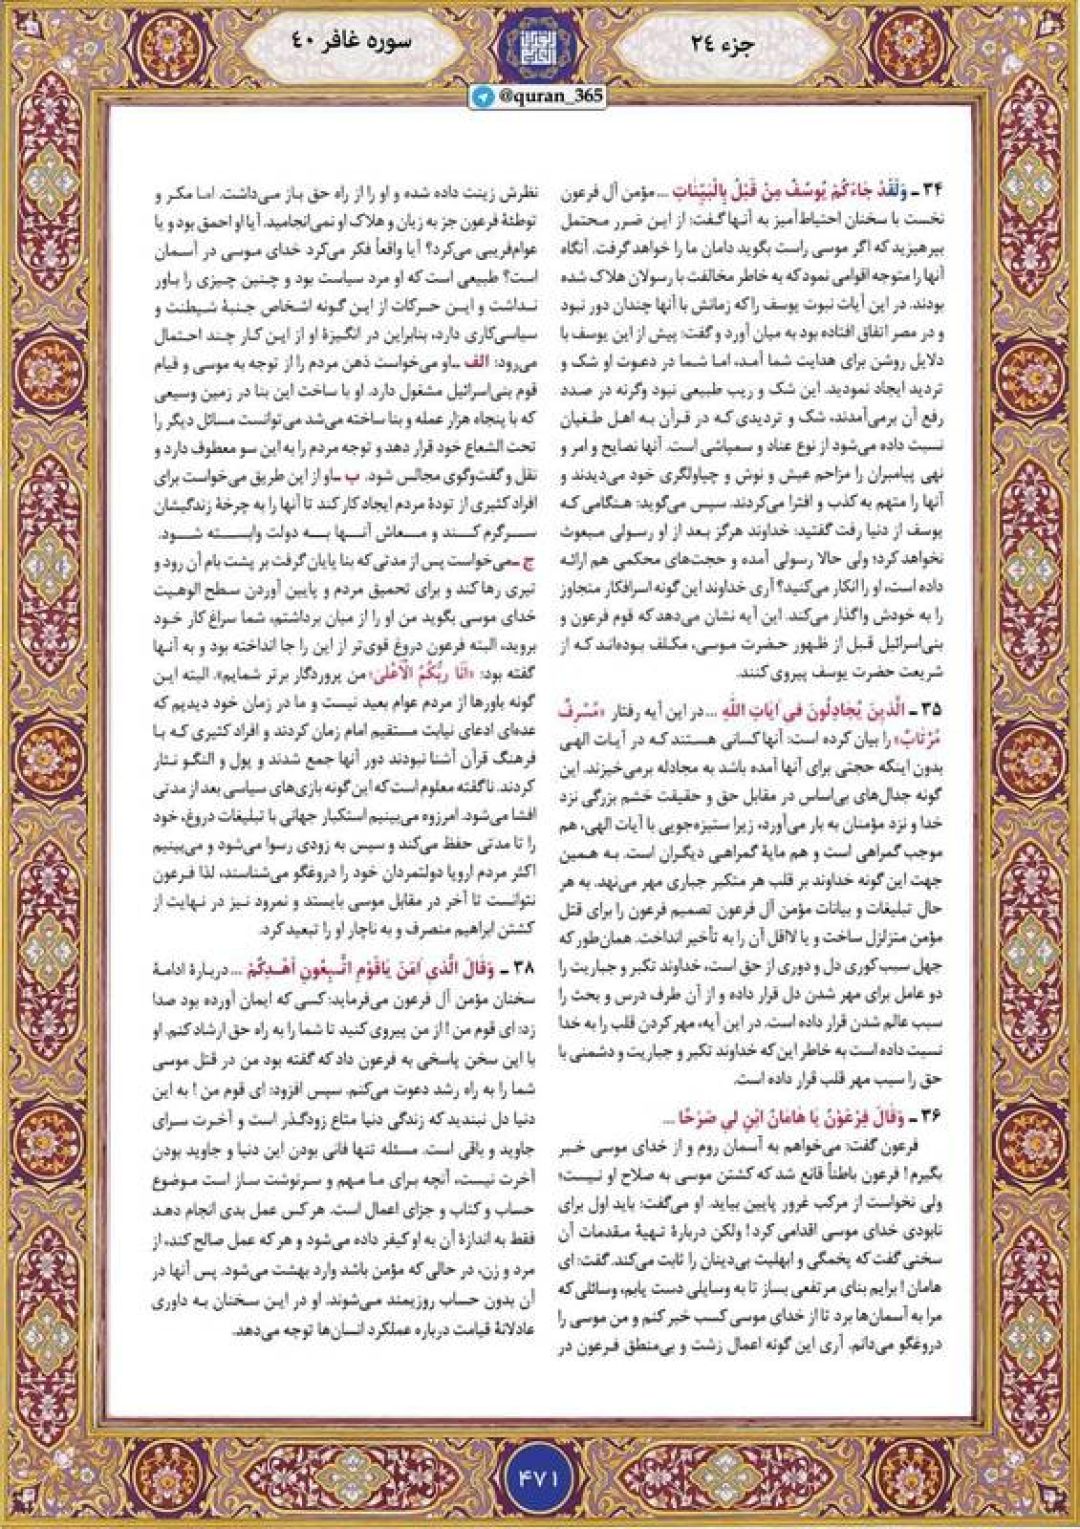 جزء ٢٤
سوره غافر ٤٠
@quran_365
۳۴ ـ وَلَقَدْ جَاءَكُمْ يُوسُفُ مِنْ قَبْلُ بِالْبَيِّنَاتِ ... مؤمن آل فرعون
نخست با سخنان احتیاط‌آمیز به آنها گفت: از این ضرر محتمل
بپرهیزید که اگر موسی راست بگوید دامان ما را خواهد گرفت. آنگاه
آنها را متوجه اقوامی نمود که به خاطر مخالفت با رسولان هلاک شده
بودند. در این آیات نبوت یوسف را که زمانش با آنها چندان دور نبود
و در مصر اتفاق افتاده بود به میان آورد و گفت: پیش از این یوسف با
دلایل روشن برای هدایت شما آمد، اما شما در دعوت او شک و
تردید ایجاد نمودید. این شک و ریب طبیعی نبود وگرنه در صدد
رفع آن برمی‌آمدند، شک و تردیدی که در قرآن به اهل طغیان
نسبت داده می‌شود از نوع عناد و سمپاشی است. آنها نصایح و امر و
نهی پیامبران را مزاحم عیش و نوش و چپاولگری خود می‌دیدند و
آنها را متهم به کذب و افترا می‌کردند. سپس می‌گوید: هنگامی که
یوسف از دنیا رفت گفتید: خداوند هرگز بعد از او رسولی مبعوث
نخواهد کرد؛ ولی حالا رسولی آمده و حجت‌های محکمی هم ارائه
داده است، او را انکار می‌کنید؟ آری خداوند این گونه اسرافکار متجاوز
را به خودش واگذار می‌کند. این آیه نشان می‌دهد که قوم فرعون و
بنی‌اسرائیل قبل از ظهور حضرت موسی، مکلف بوده‌اند که از
شریعت حضرت یوسف پیروی کنند.
۳۵ ـ الَّذِينَ يُجَادِلُونَ فِي آيَاتِ اللَّهِ ... در این آیه رفتار «مُسْرِفٌ
مُرْتَابٌ» را بیان کرده است: آنها کسانی هستند که در آیات الهی
بدون اینکه حجتی برای آنها آمده باشد به مجادله برمی‌خیزند. این
گونه جدال‌های بی‌اساس در مقابل حق و حقیقت خشم بزرگی نزد
خدا و نزد مؤمنان به بار می‌آورد، زیرا ستیزه‌جویی با آیات الهی، هم
موجب گمراهی است و هم مایهٔ گمراهی دیگران است. به همین
جهت این گونه خداوند بر قلب هر متکبر جباری مهر می‌نهد. به هر
حال تبلیغات و بیانات مؤمن آل فرعون تصمیم فرعون را برای قتل
مؤمن متزلزل ساخت و یا لااقل آن را به تأخیر انداخت. همان‌طور که
جهل سبب کوری دل و دوری از حق است، خداوند تکبر و جباریت را
دو عامل برای مهر شدن دل قرار داده و از آن طرف درس و بحث را
سبب عالم شدن قرار داده است. در این آیه، مهر کردن قلب را به خدا
نسبت داده است به خاطر این که خداوند تکبر و جباریت و دشمنی با
حق را سبب مهر قلب قرار داده است.
۳۶ ـ وَقَالَ فِرْعَوْنُ يَا هَامَانُ ابْنِ لِي صَرْحًا ...
فرعون گفت: می‌خواهم به آسمان روم و از خدای موسی خبر
بگیرم! فرعون باطناً قانع شد که کشتن موسی به صلاح او نیست؛
ولی نخواست از مرکب غرور پایین بیاید. او می‌گفت: باید اول برای
نابودی خدای موسی اقدامی کرد! ولکن دربارهٔ تهیهٔ مقدمات آن
سخنی گفت که پخمگی و ابهلیت بی‌دینان را ثابت می‌کند. گفت: ای
هامان! برایم بنای مرتفعی بساز تا به وسایلی دست یابم، وسائلی که
مرا به آسمان‌ها برد تا از خدای موسی کسب خبر کنم و من موسی را
دروغگو می‌دانم. آری این گونه اعمال زشت و بی‌منطق فرعون در
نظرش زینت داده شده و او را از راه حق باز می‌داشت. اما مکر و
توطئهٔ فرعون جز به زیان و هلاک او نمی‌انجامید. آیا او احمق بود و یا
عوام‌فریبی می‌کرد؟ آیا واقعاً فکر می‌کرد خدای موسی در آسمان
است؟ طبیعی است که او مرد سیاست بود و چنین چیزی را باور
نداشت و این حرکات از این گونه اشخاص جنبهٔ شیطنت و
سیاسی‌کاری دارد، بنابراین در انگیزهٔ او از این کار چند احتمال
می‌رود: الف ـ او می‌خواست ذهن مردم را از توجه به موسی و قیام
قوم بنی‌اسرائیل مشغول دارد. او با ساخت این بنا در زمین وسیعی
که با پنجاه هزار عمله و بنا ساخته می‌شد می‌توانست مسائل دیگر را
تحت الشعاع خود قرار دهد و توجه مردم را به این سو معطوف دارد و
نقل و گفت‌وگوی مجالس شود. ب ـ او از این طریق می‌خواست برای
افراد کثیری از تودهٔ مردم ایجاد کار کند تا آنها را به چرخهٔ زندگیشان
سرگرم کند و معاش آنها به دولت وابسته شود.
ج ـ می‌خواست پس از مدتی که بنا پایان گرفت بر پشت بام آن رود و
تیری رها کند و برای تحمیق مردم و پایین آوردن سطح الوهیت
خدای موسی بگوید من او را از میان برداشتم، شما سراغ کار خود
بروید، البته فرعون دروغ قوی‌تر از این را جا انداخته بود و به آنها
گفته بود: «أَنَا رَبُّكُمُ الْأَعْلَى» من پروردگار برتر شمایم». البته این
گونه باورها از مردم عوام بعید نیست و ما در زمان خود دیدیم که
عده‌ای ادعای نیابت مستقیم امام زمان کردند و افراد کثیری که با
فرهنگ قرآن آشنا نبودند دور آنها جمع شدند و پول و النگو نثار
کردند. ناگفته معلوم است که این گونه بازی‌های سیاسی بعد از مدتی
افشا می‌شود. امروزه می‌بینیم استکبار جهانی با تبلیغات دروغ، خود
را تا مدتی حفظ می‌کند و سپس به زودی رسوا می‌شود و می‌بینیم
اکثر مردم اروپا دولتمردان خود را دروغگو می‌شناسند، لذا فرعون
نتوانست تا آخر در مقابل موسی بایستد و نمرود نیز در نهایت از
کشتن ابراهیم منصرف و به ناچار او را تبعید کرد.
۳۸ ـ وَقَالَ الَّذِي آمَنَ يَاقَوْمِ اتَّبِعُونِ أَهْدِكُمْ ... دربارهٔ ادامهٔ
سخنان مؤمن آل فرعون می‌فرماید: کسی که ایمان آورده بود صدا
زد: ای قوم من! از من پیروی کنید تا شما را به راه حق ارشاد کنم. او
با این سخن پاسخی به فرعون داد که گفته بود من در قتل موسی
شما را به راه رشد دعوت می‌کنم. سپس افزود: ای قوم من! به این
دنیا دل نبندید که زندگی دنیا متاع زودگذر است و آخرت سرای
جاوید و باقی است. مسئله تنها فانی بودن این دنیا و جاوید بودن
آخرت نیست، آنچه برای ما مهم و سرنوشت ساز است موضوع
حساب و کتاب و جزای اعمال است. هر کس عمل بدی انجام دهد
فقط به اندازهٔ آن به او کیفر داده می‌شود و هر که عمل صالح کند، از
مرد و زن، در حالی که مؤمن باشد وارد بهشت می‌شود. پس آنها در
آن بدون حساب روزیمند می‌شوند. او در این سخنان به داوری
عادلانهٔ قیامت درباره عملکرد انسان‌ها توجه می‌دهد.
۴۷۱